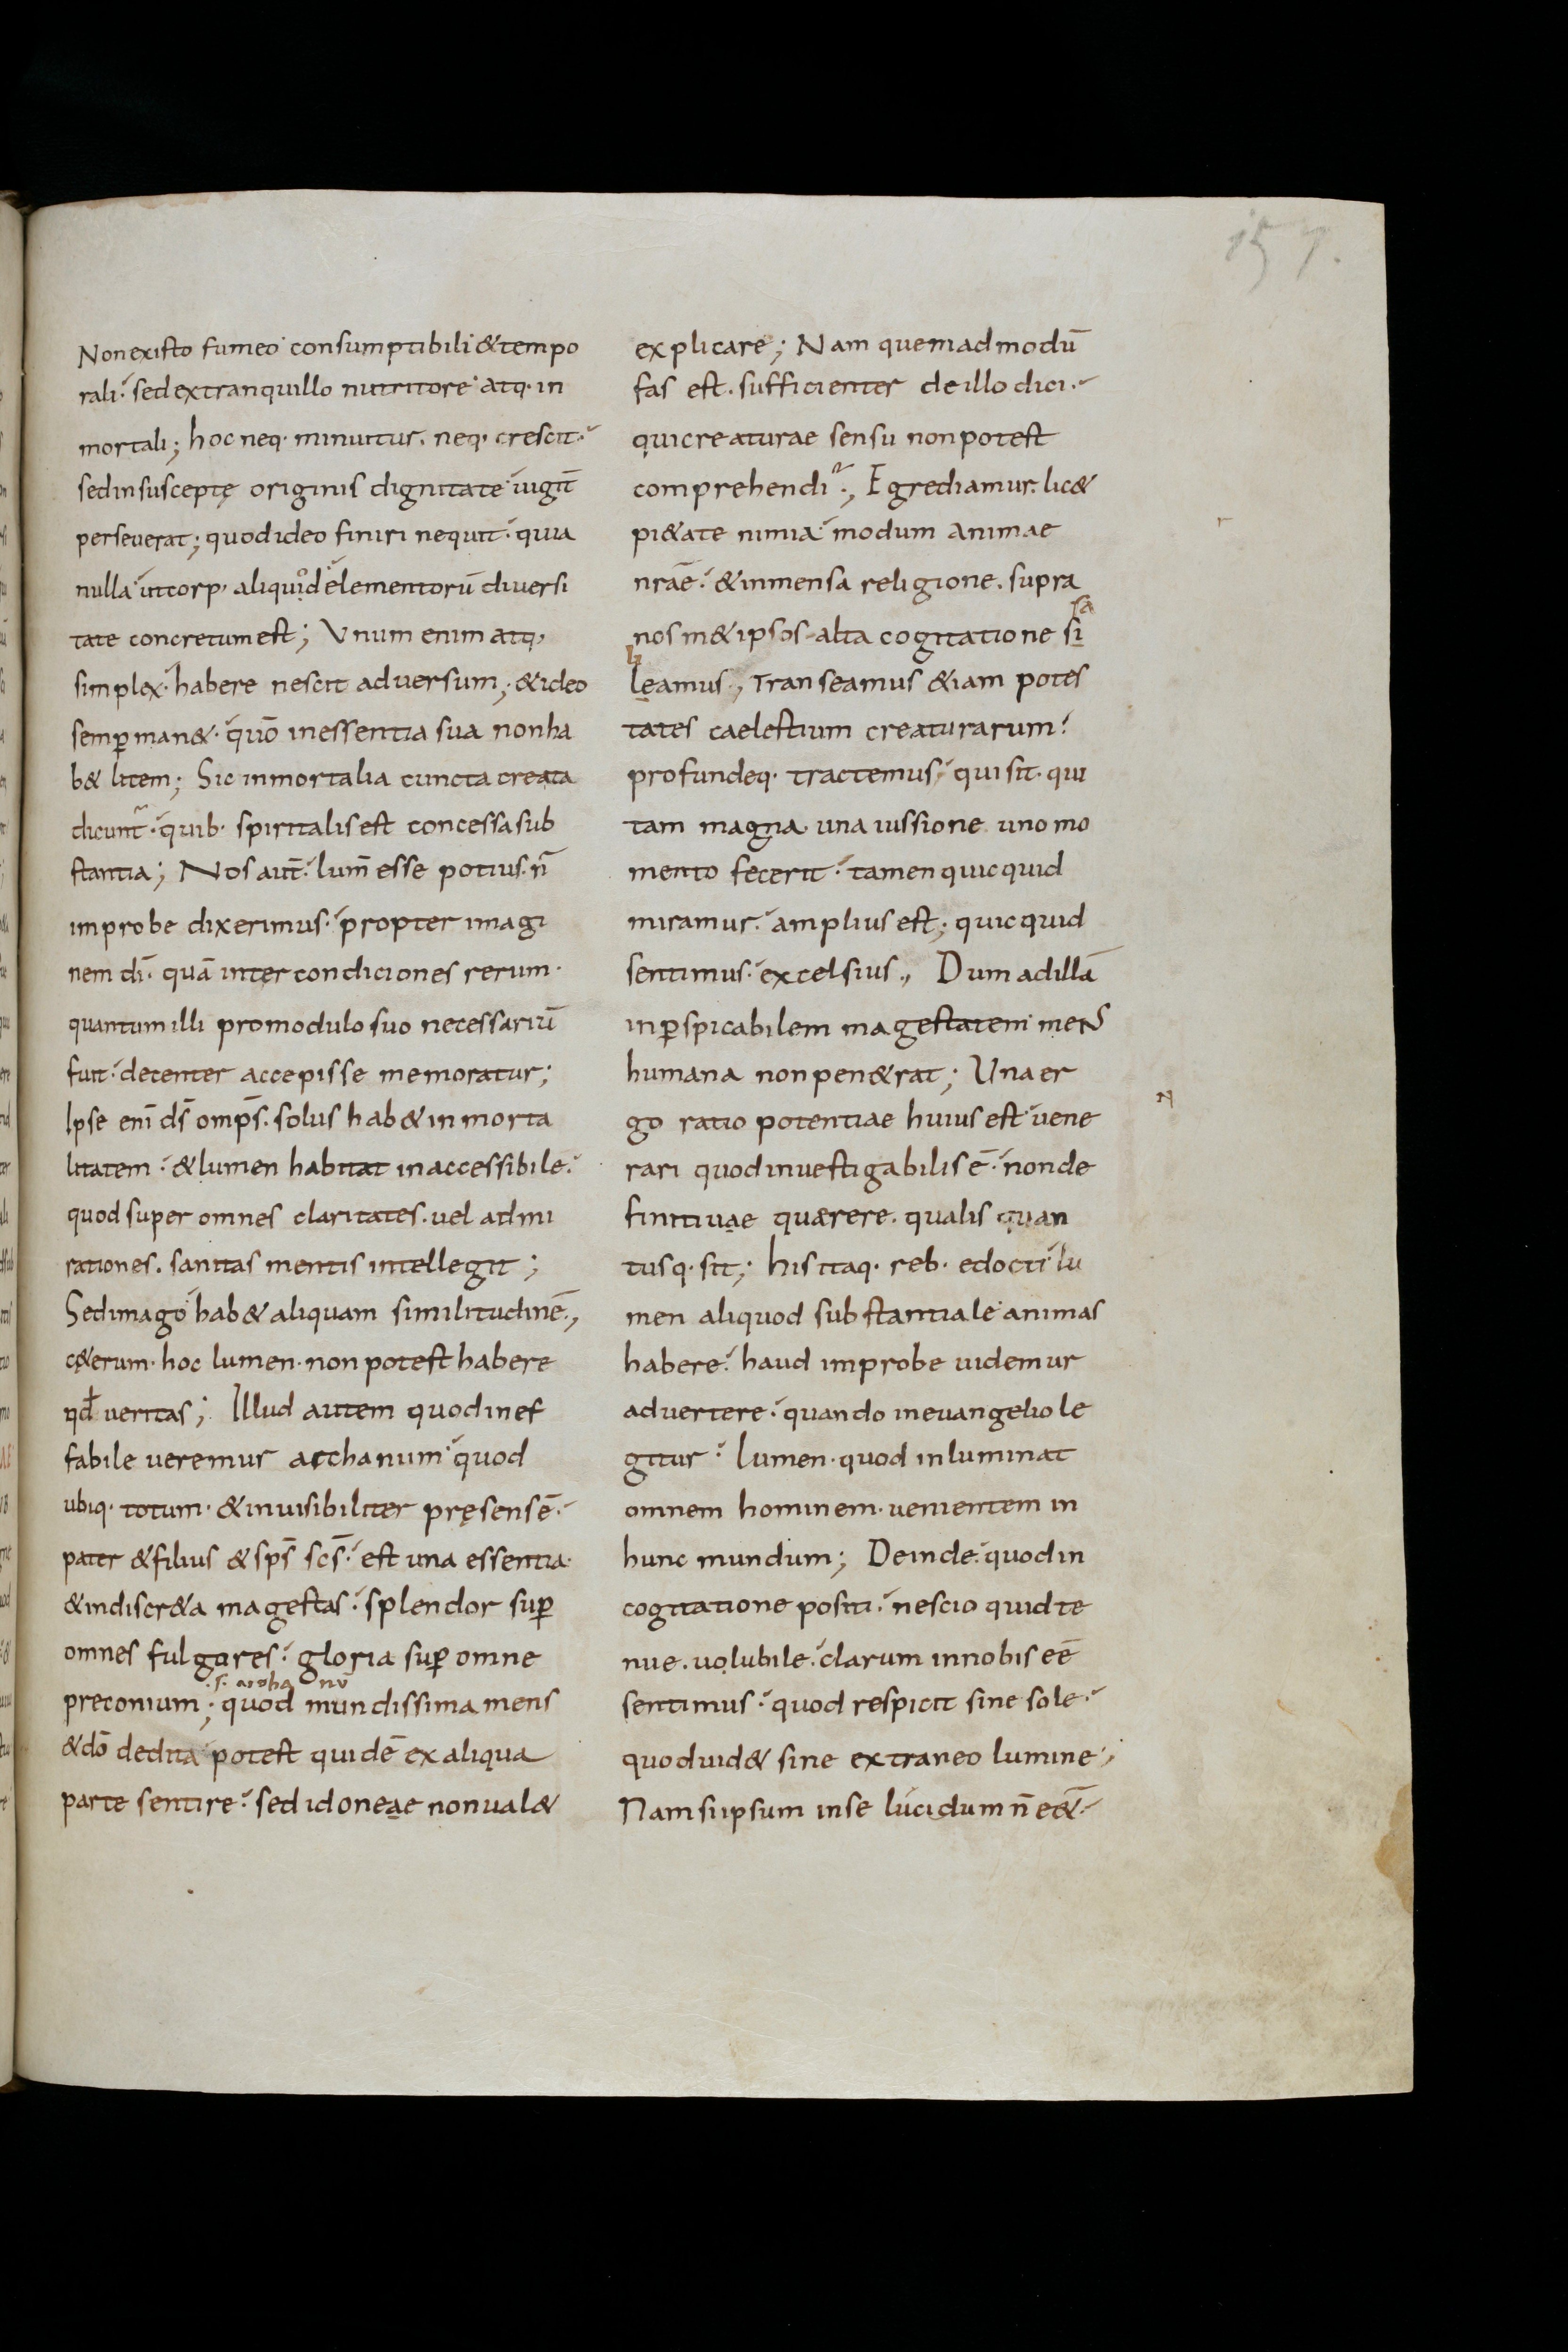 157.
Non existo fumeo consumptibili & tempo
rali. sed ex tranquillo nutritore atq. in
mortali; hoc neq. minuitur. neq. crescit.
sed in susceptę originis dignitate iugit̄
perseverat; quod ideo finiri nequit. quia
nulla in corp. aliquod elementorū diversi
tate concretum est; Unum enim atq.
simplex. habere nescit adversum; & ideo
semp̄ man&. quō in essentia sua non ha
b& litem; Sic inmortalia cuncta creata
dicunt̃. quib. spiritalis est concessa sub
stantia; Nos aut̄. lum̄ esse potius. n̄
improbe dixerimus. propter imagi
nem dī. quā inter condiciones rerum.
quantum illi pro modulo suo necessariū
fuit. decenter accepisse memoratur;
Ipse enī ds̄ omps̄. solus hab& inmorta
litatem. & lumen habitat inaccessibile.
quod super omnes claritates. vel admi
rationes. sanitas mentis intellegit;
Sed imago hab& aliquam similitudinē.,
c&erum. hoc lumen. non potest habere
qd̄ veritas; Illud autem quod inef
fabile veremur archanum quod
ubiq. totum. & invisibiliter pręsens ē.
pater & filius & sps̄ scs̄. est una essentia.
& indiscr&a magestas. splendor sup̄
omnes fulgores. gloria sup̄ omne
preconium; quod mundissima mens
& dō dedita potest quidē ex aliqua
parte sentire. sed idoneae non val&
explicare; Nam quemadmodū
fas est. sufficienter de illo dici.
qui creaturae sensu non potest
comprehendi., Egrediamur. lic&
pi&ate nimia modum animae
nrāe. & inmensa religione. supra
sa
nosm&ipsos alta cogitatione si
li
leamus., Transeamus &iam potes
tates caelestium creaturarum.
profundeq. tractemus. qui sit. qui
tam magna. una iussione uno mo
mento fecerit. tamen quicquid
miramur. amplius est; quicquid
sentimus. excelsius., Dum ad illā
inp̄spicabilem magestatem mens
humana non pen&rat; Una er
go ratio potentiae huius est vene
rari quod investigabilis ē. non de
finitivae quærere. qualis quan
tusq. sit; his itaq. reb. edocti lu
men aliquod substantiale animas
habere. haud improbe videmur
advertere. quando in evangelio le
gitur. lumen. quod inluminat
omnem hominem. venientem in
hunc mundum; Deinde. quod in
cogitatione positi. nescio quid te
nue. volubile. clarum in nobis eē
sentimus. quod respicit sine sole.
quod vid& sine extraneo lumine.,
Nam si ipsum in se lucidum n̄ e&̄.